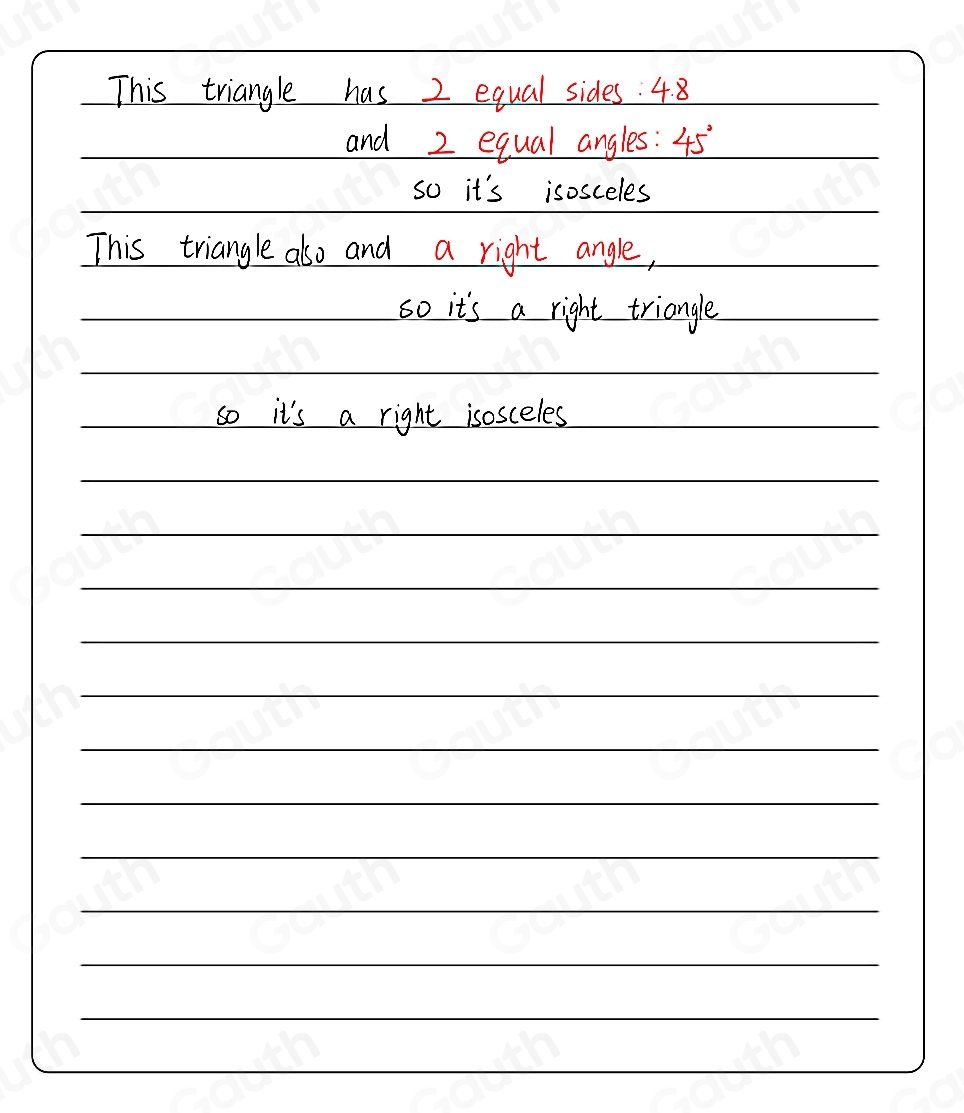 This triangle has 2 equal sides : 4.8
and 2 equal angles: 45°
so it's isosceles
This triangle also and a right angle,
so it's a right triangle
so it's a right isosceles